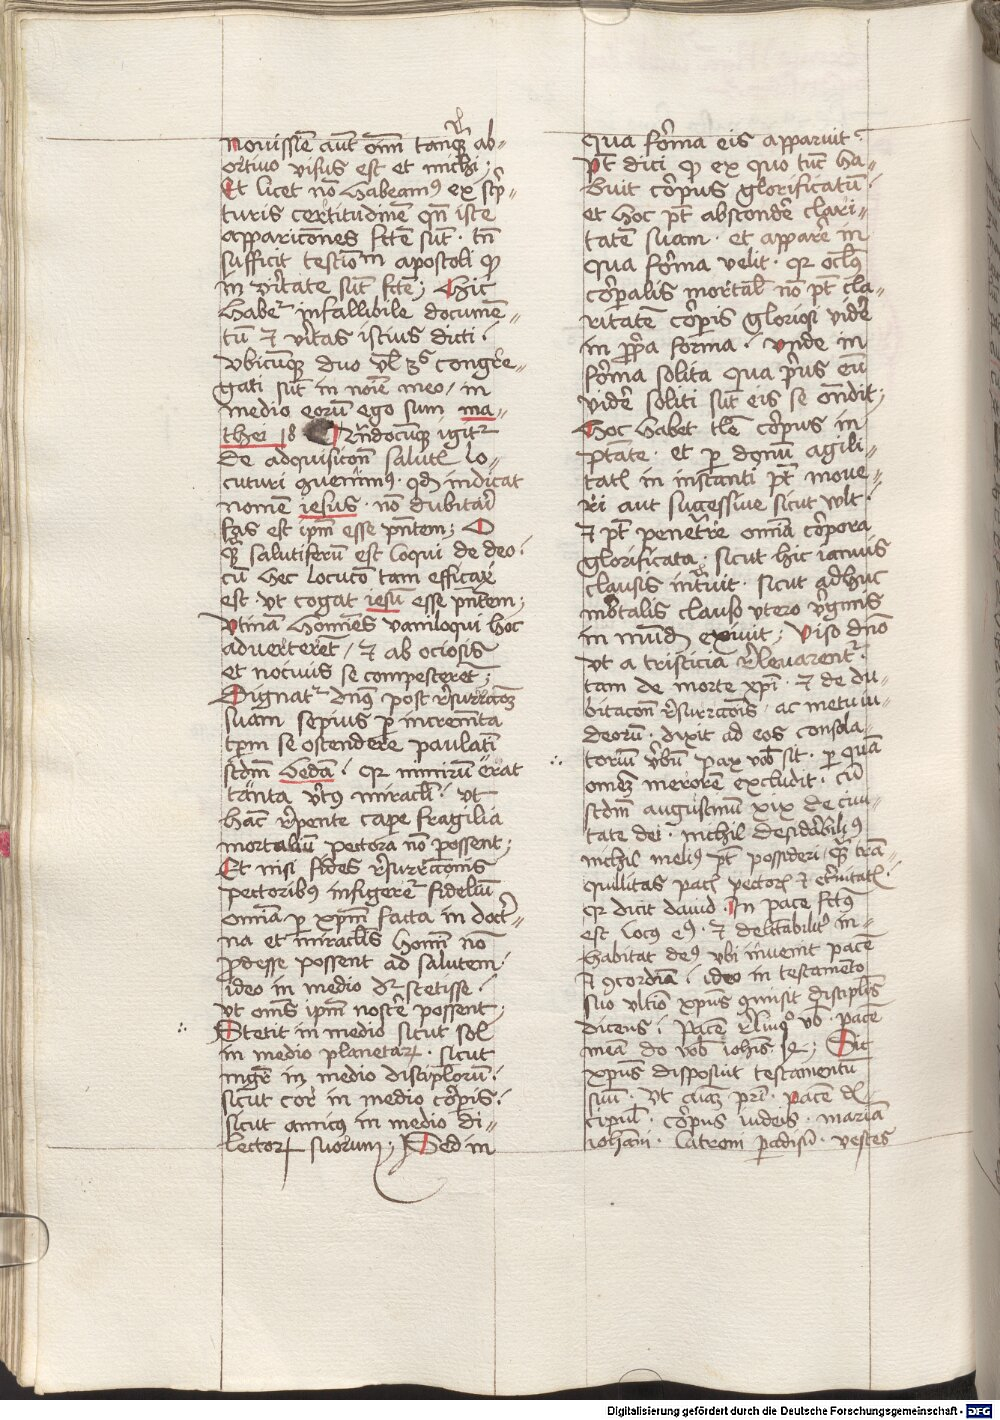 Nouissīe aut̄ oīm tanq̄ꝫ ab⸗
ortiuo visus est et michi ;
Et licet nō habeamꝰ ex sc̄p⸗
turis certitudinē qn̄ iste
apparicōnes fc̄te sūt · tn̄
sufficit testiōm apostoli ꝙ
in v̾itate sūt fc̄te ; Hic
habet᷑ infallibile documē⸗
tū et v̾itas istius dicti ·
Vbicūqꝫ duo vl̾ 3s congre⸗
gati sūt in noīe meo / in
medio eorū ego sum ma⸗
thei 18 Qn̄docūqꝫ igit᷑
de adquisicōn̄ salutꝭ lo⸗
cuturi ꝯuenimꝰ · qd̄ indicat
nomē iesus · nō dubitar̄
fas est ip̄m esse p̄ntem ; O
q̄ꝫ salutiferū est loqui de deo ·
cū hec locuto tam efficax
est vt cogat iesū esse p̄ntem ;
Vtinā hoīēs vaniloqui hoc
aduerterēt / et ab ociosis
et nociuis se compescerēt ;
Dignat᷑ dn̄s post r̾surr̄coēꝫ
suam sepius ꝑ incremēta
tꝑm se ostendere paulatī
sc̄dm bedā · qr nimirū erat
tanta v̾tus miracl̾i · vt
hāc r̾pente caꝑe fragilia
mortaliū pectora nō possent ;
Et nisi fides r̾surr̄coīs
pectoribus infigeret᷑ fidelīu
omīa ꝑ xp̄m facta in doct̾i⸗
na et miracl̾is homī nō
ꝓdesse possent ad salutem ·
ideo in medio dr̄ stetisse ·
vt oms̄ ip̄m nosc̾e possent ;
Stetit in medio sicut sol
in medio planetarꝝ · sicut
mgr̄ in medio discip̄lorū ·
sicut cor in medio cōrpis ·
sicut amicus in medio di⸗
lectorꝝ suorum ; Sed in
qua fōrma eis apparuit ·
Pt̄ dici ꝙ ex quo tūc ha⸗
buit cōrpus glorificatū ·
et hoc pt̄ absconder̄ clari⸗
tatē suam · et apparer̄ in
qua fōrma velit · qr oclꝰ
cōrꝑalis mortal̾ nō pt̄ cla⸗
ritatē cōrpis gloriosi vider̄
in ꝓp̄a forma · vnde in
fōrma solita qua pr̾us eū
vider̄ soliti sūt eis se on̄dit ;
Hoc habet tl̄e cōrpus in
ptāte · et ꝑ donū agili⸗
tatꝭ in instanti pt̄ moue⸗
ri aut sucessiue sicut vult ·
et pt̄ penetrare omīa cōrpora
glorificata · sicut hic ianuis
clausis int̾uit · sicut adhuc
mōrtalis clauso vtero v̾ginis
in mūdū exiuit ; Viso dn̄o
vt a tristicia r̾leuarent᷑
tam de morte xp̄i · et de du⸗
bitacōn̄ r̾surr̄coīs · ac metu iu⸗
deorū · dixit ad eos consola⸗
toriū v̾bū pax vob̄ sit · ꝑ quā
omēꝫ merorē excludit · cū
sc̄dm augustinū xix de ciui⸗
tate dei · nichil desid̾abiliꝰ
nichil meliꝰ pt̄ possideri q̄ꝫ trā⸗
quillitas pacꝭ pectorꝭ et et̾nitatꝭ
qr dicit dauid · In pace fc̄tus
est locus eiꝰ · et delectabilit᷑ in⸗
habitat deꝰ vbi īuenit pacē
et ꝯcordiā · ideo in testamēto
suo vltīo xp̄us ꝯmisit discip̄lis
dicens · Pacē r̾linqo vob̄ · pacē
meā do vob̄ ioh̄is · 14 ; Sic
xp̄us disposuit testamentū
suū · vt aīaꝫ pr̄i · pacē di⸗
cipul̾ · cōrpus iudeis · mariā
ioh̄ani · latroni paradisū · vestes
Digitalisierung gefördert durch die Deutsche Forschungsgemeinschaft - DFG